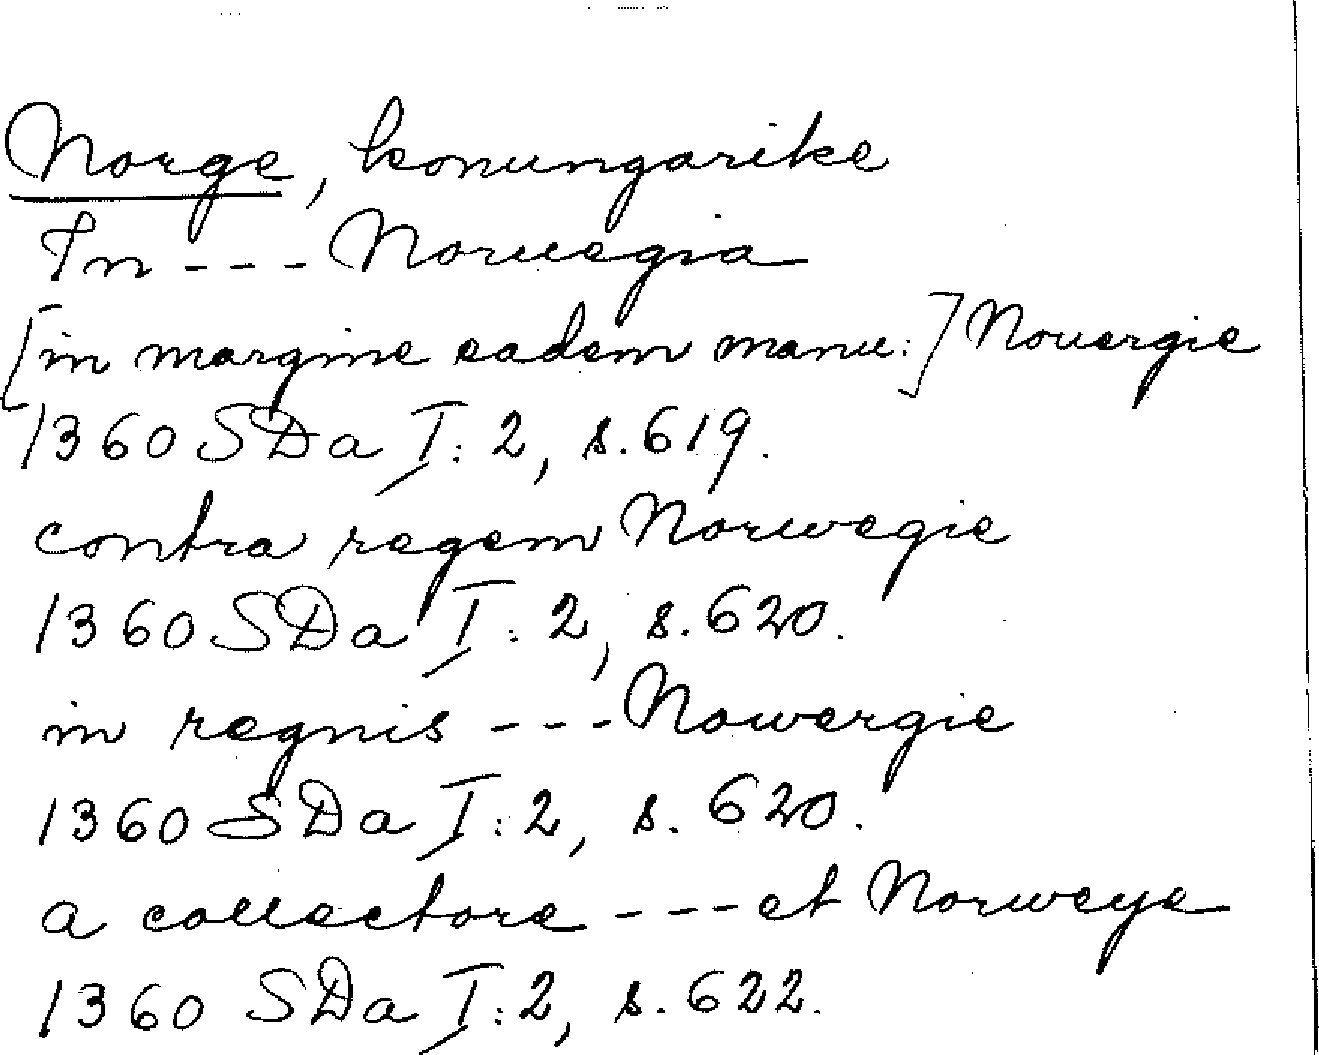 Norge, konungarike
In --- Noruegia
[in margine eadem manu:] Nouergie
1360 SDa I:2, s.619.
contra regem Norwegie
1360 SDa I:2, s.620.
in regnis --- Nowergie
1360 SDa I:2, s.620.
a collectore --- et Norweye
1360 SDa I:2, s.622.